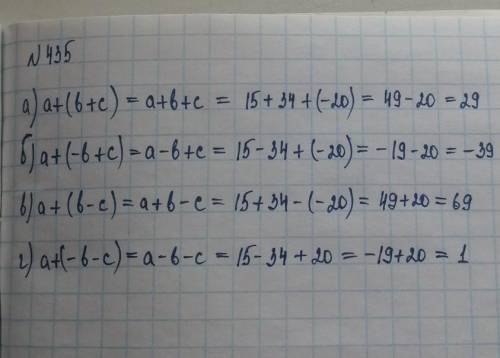 №435
а) a+(b+c) = a+b+c = 15+34+(-20) = 49-20 = 29
б) a+(-b+c) = a-b+c = 15-34+(-20) = -19-20 = -39
в) a+(b-c) = a+b-c = 15+34-(-20) = 49+20 = 69
г) a+(-b-c) = a-b-c = 15-34+20 = -19+20 = 1